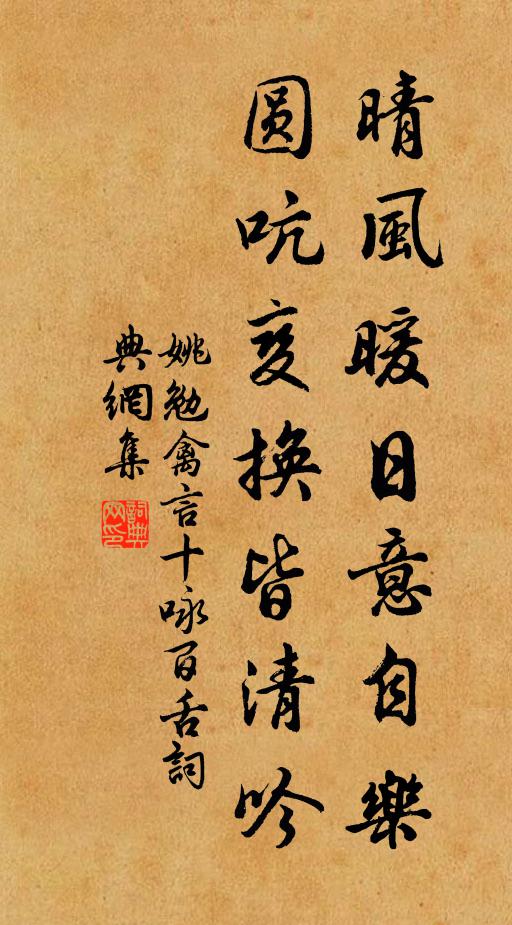 晴風暖日意自樂
圓吭變換皆清吟
姚勉禽言十咏百舌詞
典網集
詞典
网印